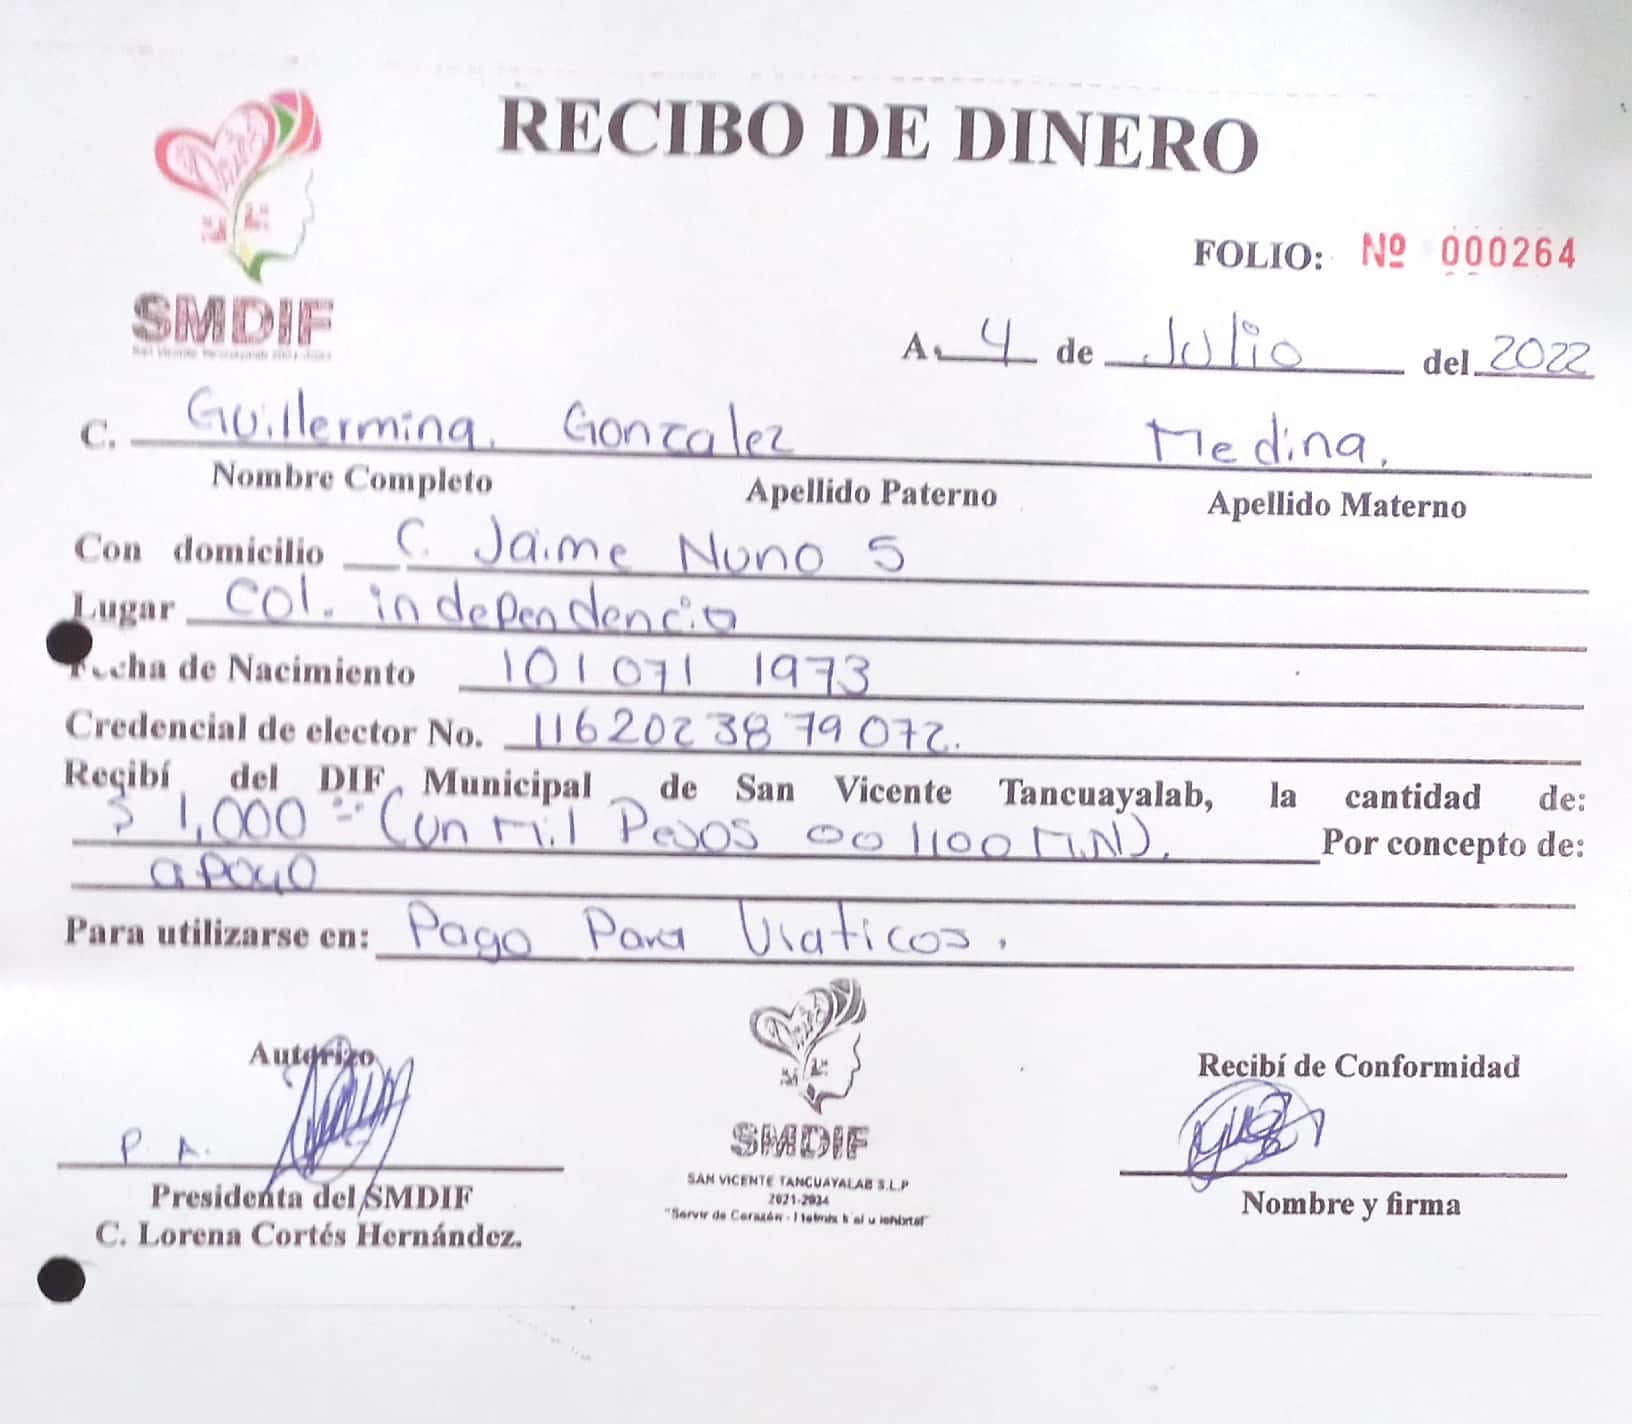 RECIBO DE DINERO
FOLIO: Nº 000264
SMDIF
A. 4 de Julio del 2022
C. Guillermina. Gonzalez Medina.
Nombre Completo Apellido Paterno Apellido Materno
Con domicilio C. Jaime Nuno 5
Lugar Col. independencia
Fecha de Nacimiento 10/07/ 1973
Credencial de elector No. 1162023879072.
Recibí del DIF Municipal de San Vicente Tancuayalab, la cantidad de:
$ 1,000 = (un mil Pesos 00/100 M.N). Por concepto de:
apoyo
Para utilizarse en: Pago Para Viaticos.
Autorizo
Recibí de Conformidad
P. A.
SMDIF
Presidenta del SMDIF
SAN VICENTE TANCUAYALAB S.L.P
Nombre y firma
2021-2024
C. Lorena Cortés Hernández.
"Servir de Corazón -